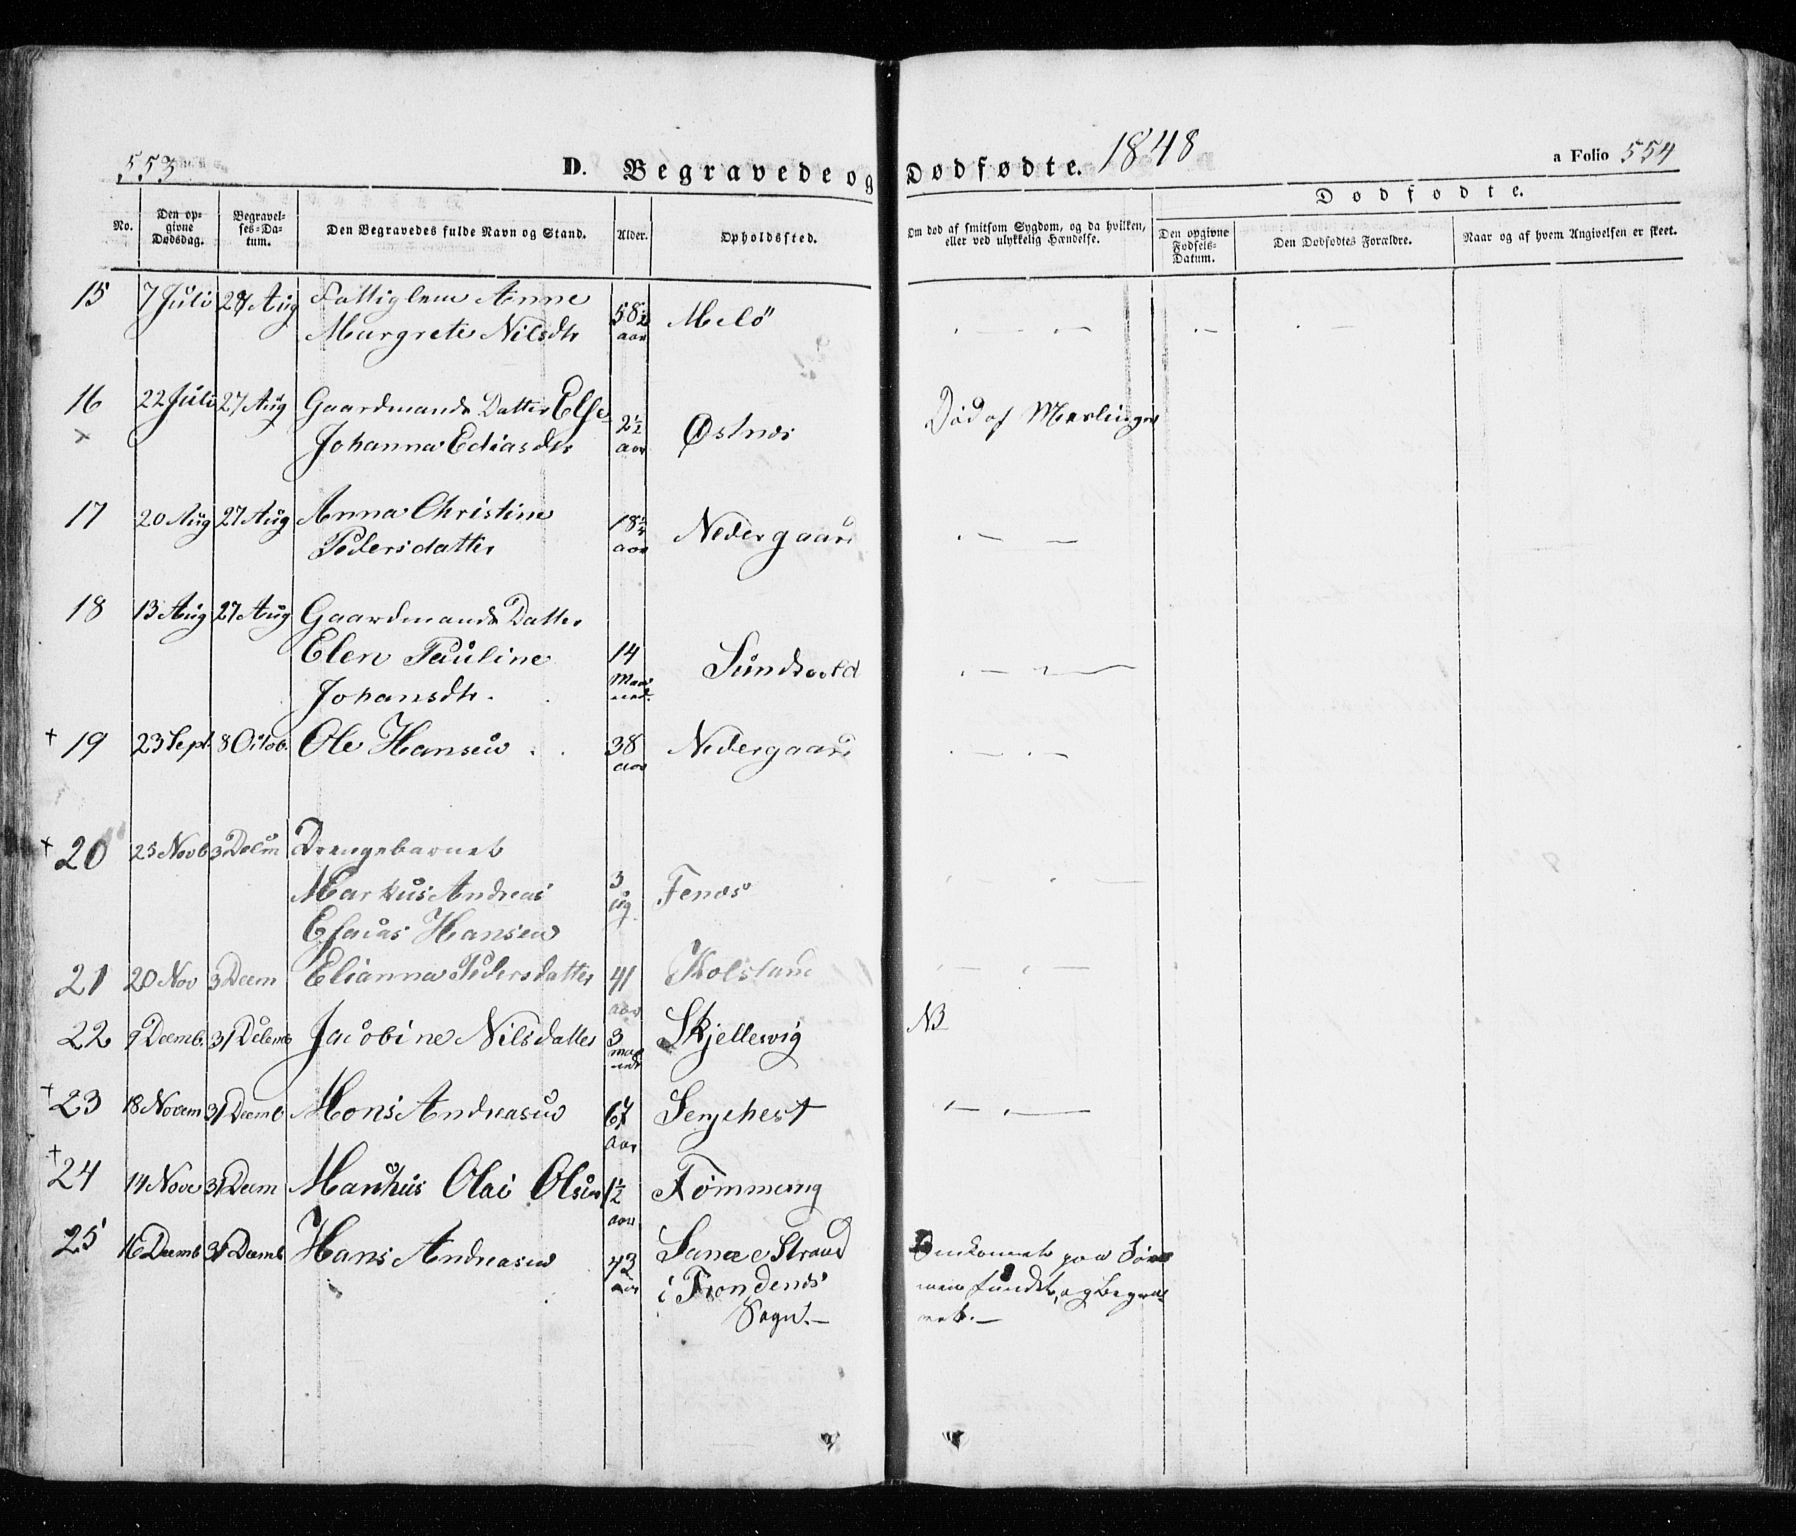 553
D. Begravede og Dødfødte. 1848
a Folio 554
No.
Den opgivne Dødsdag.
Begravelses-Datum.
Den Begravedes fulde Navn og Stand.
Alder.
Opholdssted.
Om død af smitsom Sygdom, og da hvilken, eller ved ulykkelig Hændelse.
Dødfødte.
Den opgivne Fødsels-Datum.
Den Dødfødtes Forældre.
Naar og af hvem Angivelsen er skeet.
15 7 Juli 28 Aug Fattiglem Anne 58½ Melö
Margrete Nilsdtr aar
16 22 Juli 27 Aug Gaardmands Datter Else 2½ Østnes Död af Meslinger
Johanna Eliasdtr aar
17 20 Aug 27 Aug Anna Christine 18 Nedergaard
Pedersdatter aar
18 13 Aug 27 Aug Gaardmands Datter
Elen Pauline 14 Sundsvold
Johansdtr. Maaned
19 23 Sept 8 Octob. Ole Hansen 38 Nedergaard
aar
20 25 Novb 3 Decm Drengebarnet
Markus Andreas 3 Fenes
Esaias Hansen ug
21 20 Nov 3 Decem Elianna Pedersdatter 41 Kolsland
aar
22 9 Decemb. 31 Decemb Jacobine Nilsdatter 3 Skjellesvig NB
23 18 Novem 31 Decemb Mons Andreasen 67
aar
24 14 Nove 31 Decem Markus Olai Olsen 1½
aar
25 16 Decemb 31 Decemb Hans Andreasen 73 Strand Omkommet paa Söen
aar i Trondenes funden, og begravet.—
Sogn.—